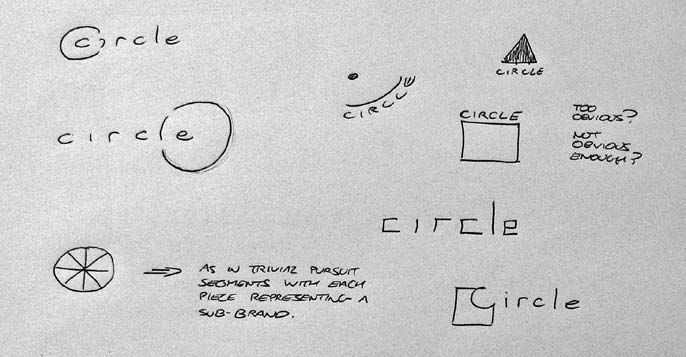 circle
circle
CIRCLE
CIRCLE
CIRCLE
TOO
OBVIOUS?
NOT
OBVIOUS
ENOUGH?
circle
AS IN TRIVIAL PURSUIT
SEGMENTS WITH EACH
PIECE REPRESENTING A
SUB-BRAND.
Circle